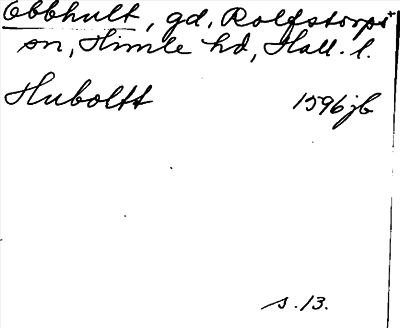 Obbhult, gd, Rolfstorps
sn, Himle hd, Hall. l.
Huboltt 1596 jb
s. 13.